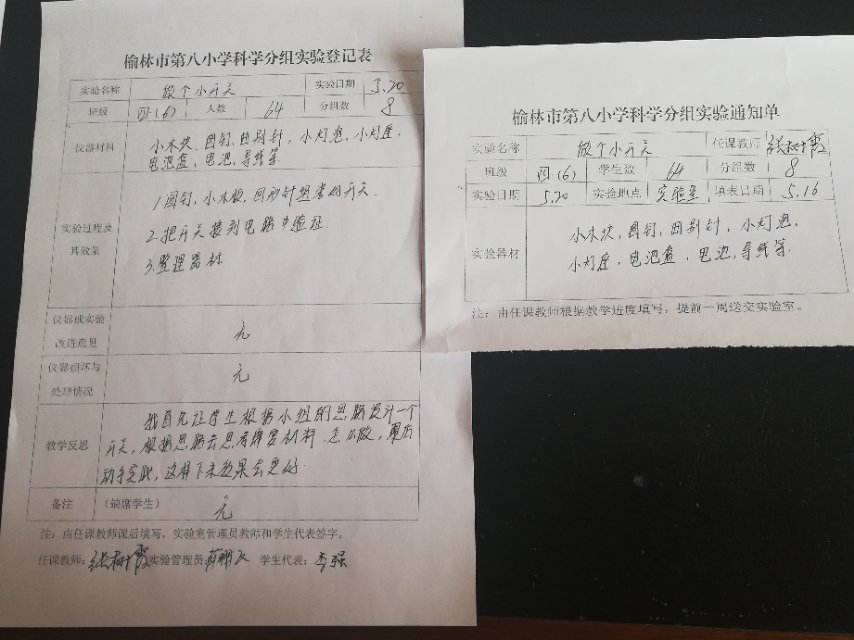 榆林市第八小学科学分组实验登记表
实验名称 做个小开关 实验日期 5.20
班级 四(6) 人数 64 分组数 8
仪器材料 小木块,图钉,回别针,小灯泡,小灯座,
电池盒,电池,导线等.
实验过程及
其效果
1.图钉,小木板,回形针组成的开关.
2.把开关接到电路中验证.
3.整理器材.
仪器或实验
改进意见 无
仪器损坏与
处理情况 无
教学反思
我首先让学生根据小组的思路设计一个
开关,根据思路去思考需要材料,怎么做,最后
动手实践,这样下来效果会更好.
备注 (缺席学生) 无
注:由任课教师课后填写,实验室管理员教师和学生代表签字。
任课教师: 实验管理员: 学生代表:李强
榆林市第八小学科学分组实验通知单
实验名称 做个小开关 任课教师
班级 四(6) 学生数 64 分组数 8
实验日期 5.20 实验地点 实验室 填表日期 5.16
实验器材 小木块,图钉,回别针,小灯泡,
小灯座,电池盒,电池,导线等.
注:由任课教师根据教学进度填写,提前一周送交实验室。